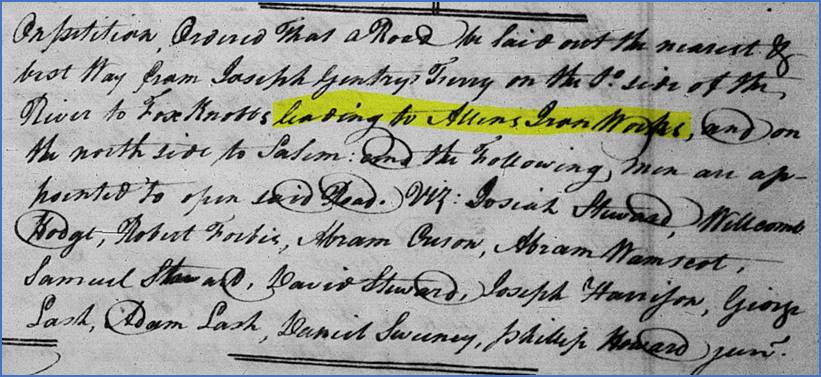 On petition, Ordered That a Road be laid out the nearest &
best Way from Joseph Gentrys Ferry on the So side of the
River to Fox Knobbs leading to Allens Iron Works, and on
the north side to Salem: and the Following, men are ap-
pointed to open said Road. Viz: Josiah Steward, Willcomb
Hodge, Robert Forbis, Abram Cuson, Abram Wamscot,
Samuel Steward, David Steward, Joseph Harrison, George
Lash, Adam Lash, Daniel Sweeney, Phillip Howard junr.